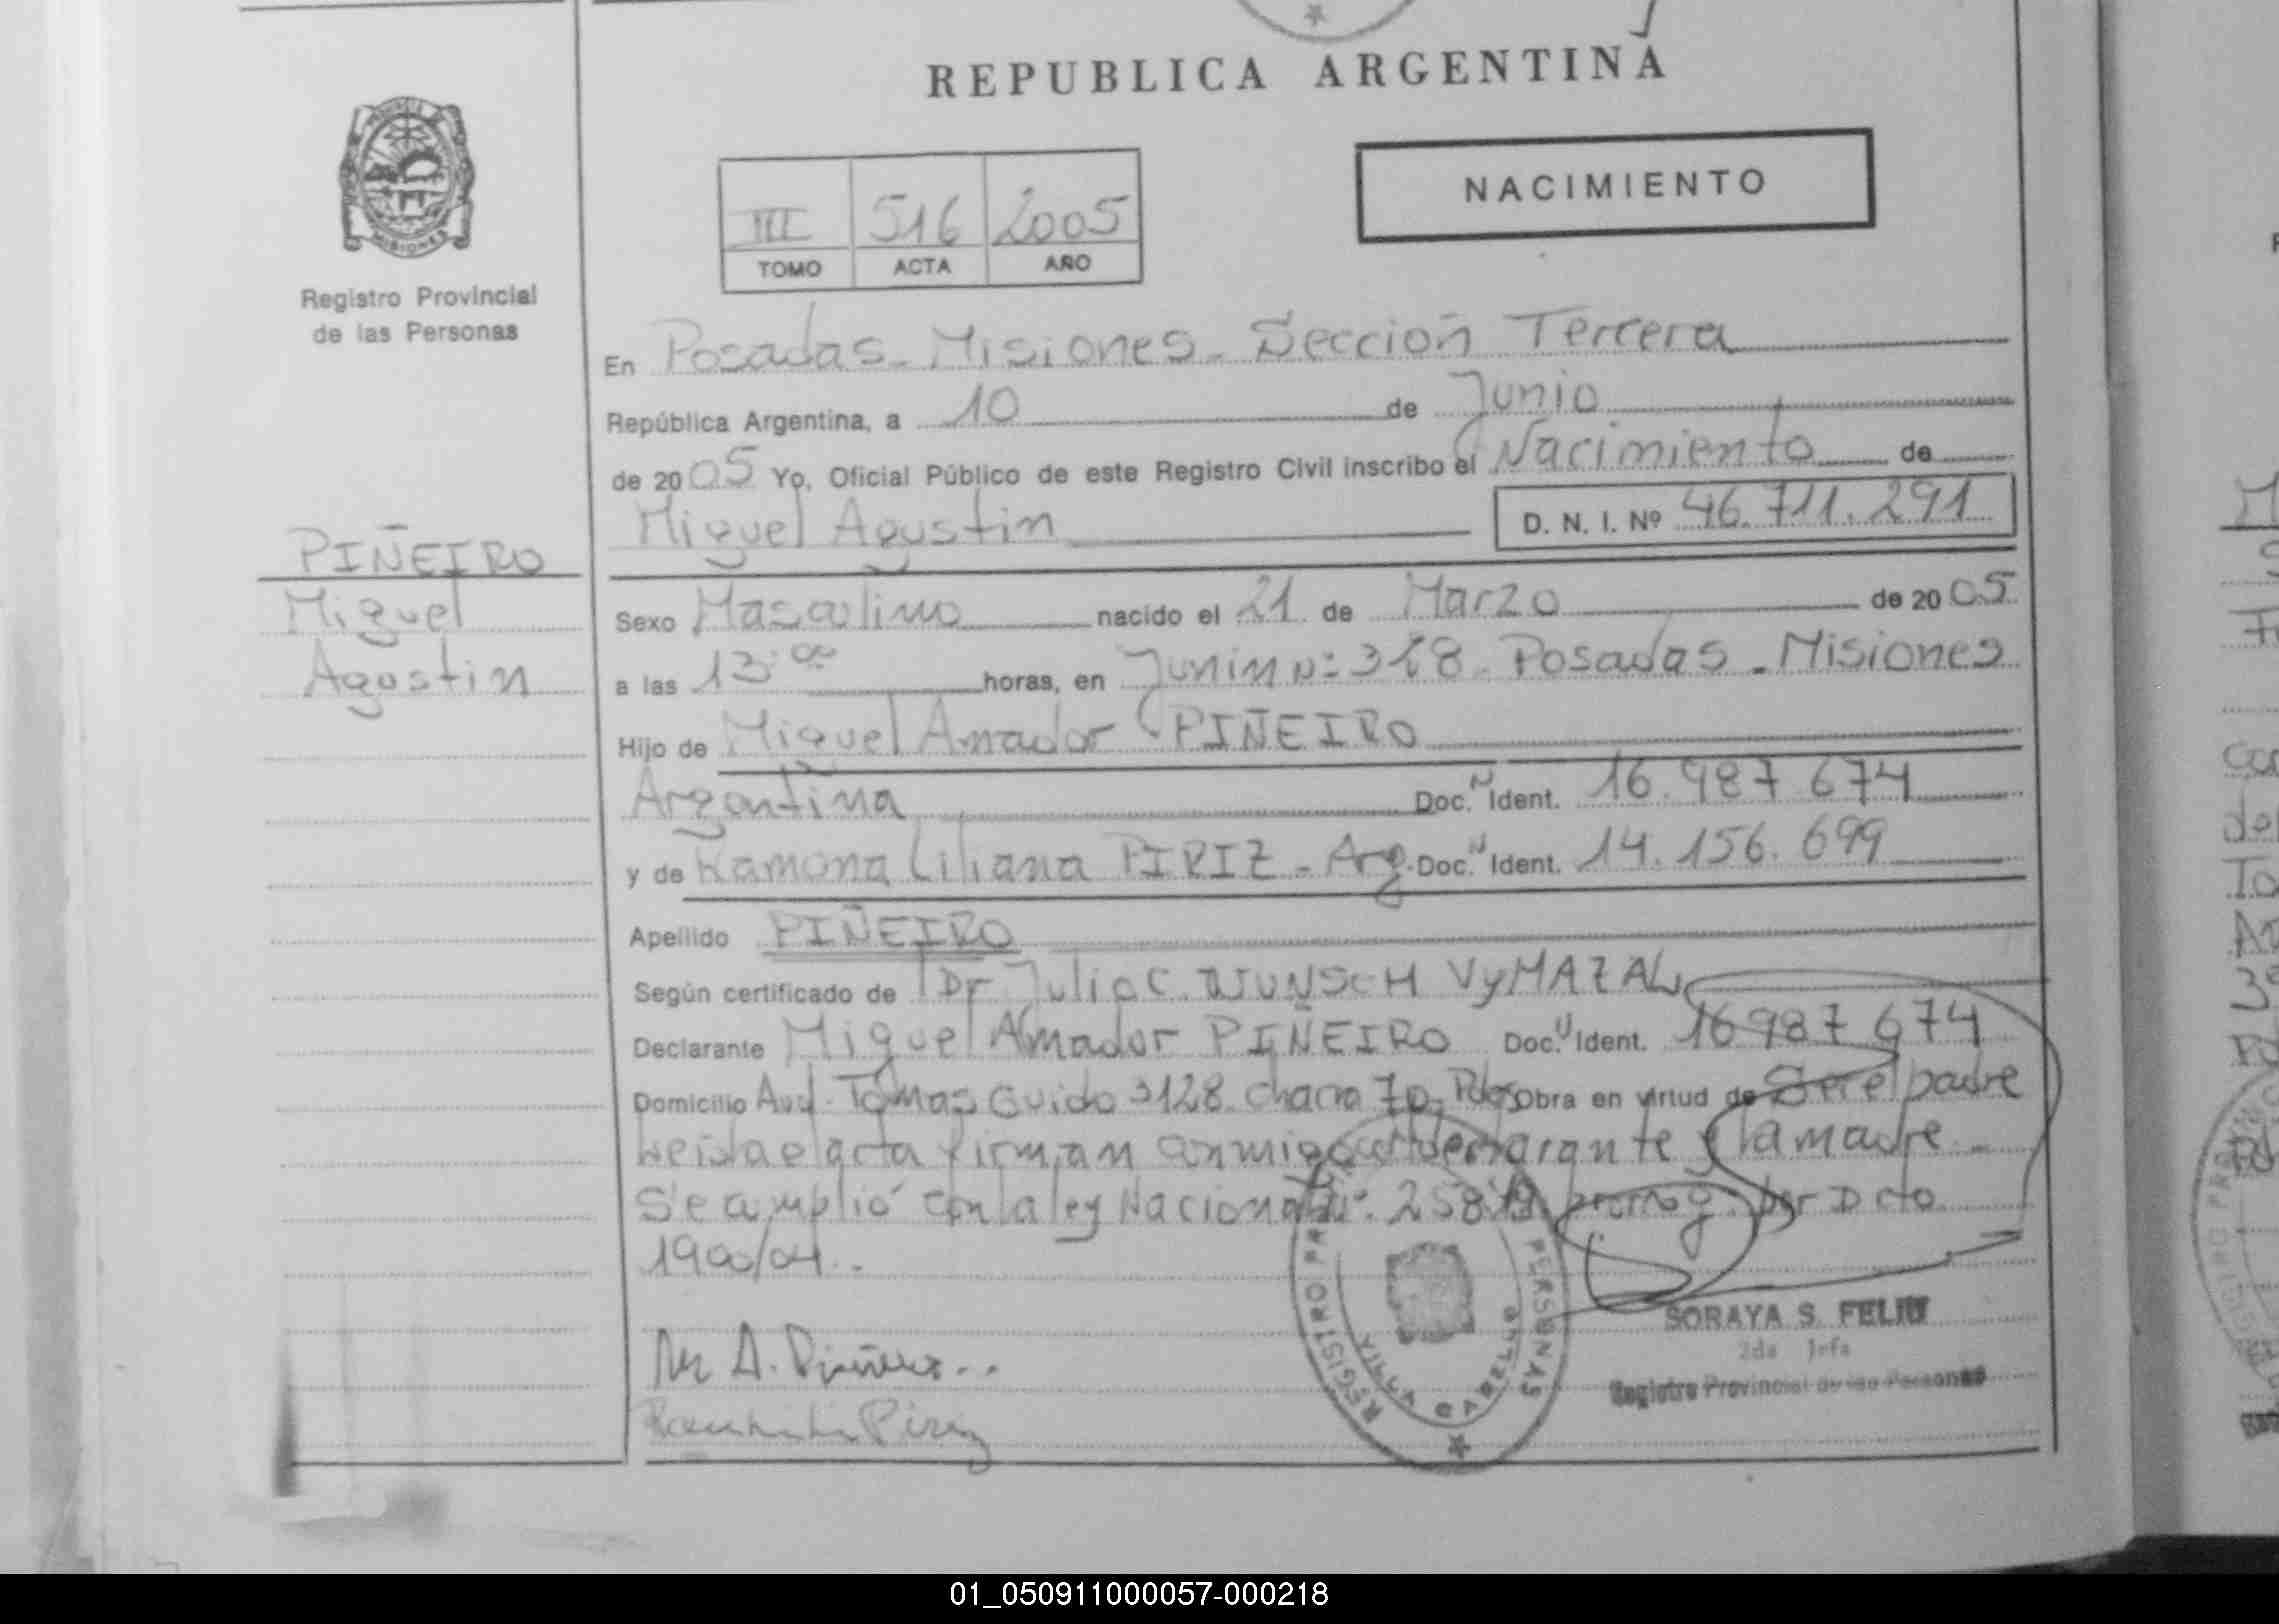 REPUBLICA ARGENTINA
MISIONES
Registro Provincial
de las Personas
III 516 2005
TOMO ACTA AÑO
NACIMIENTO
En Posadas - Misiones - Sección Tercera
República Argentina, a 10 de Junio
de 2005 Yo, Oficial Público de este Registro Civil inscribo el Nacimiento de
Miguel Agustin D. N. I. Nº 46.711.291
PIÑEIRO
Miguel
Agustin
Sexo Masculino nacido el 21 de Marzo de 2005
a las 13:00 horas, en Junin Nº 318 - Posadas - Misiones
Hijo de Miguel Amador PIÑEIRO
Argentina Doc. N Ident. 16.987.674
y de Ramona Liliana PIRIZ - Arg. Doc. N Ident. 14.156.699
Apellido PIÑEIRO
Según certificado de Dr Julio C. WUNSCH VyMAZAL
Declarante Miguel Amador PIÑEIRO Doc. N Ident. 16987674
Domicilio Avd. Tomas Guido 3128 chacra 70. Pdas Obra en virtud de Ser el padre
Leida el acta firman conmigo el declarante y la madre -
Se amplió con la ley Nacional Nº: 25819 prorrog. por Dcto
1900/04.
M A. Piñeiro..
Piriz
REGISTRO PERSONAS
VILLA CABELLO
SORAYA S. FELIU
2da Jefa
Registro Provincial de las Personas
01_050911000057-000218